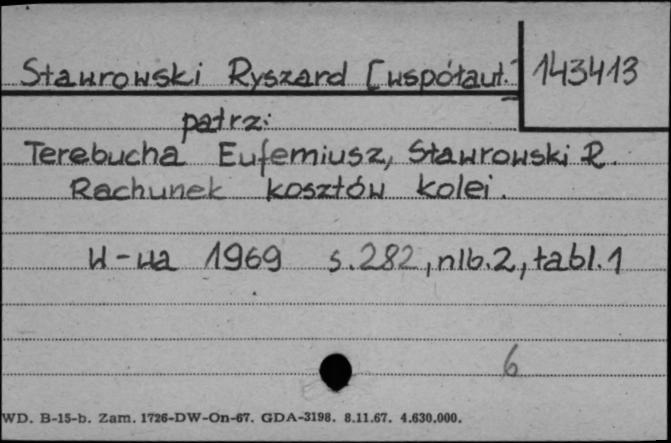 Stawrowski Ryszard [współaut.] 143413
patrz:
Terebucha Eufemiusz, Stawrowski R.
Rachunek kosztów kolei.
W-wa 1969 s.282, nlb.2, tabl.1
6
WD. B-15-b. Zam. 1726-DW-On-67. GDA-3198. 8.11.67. 4.630.000.